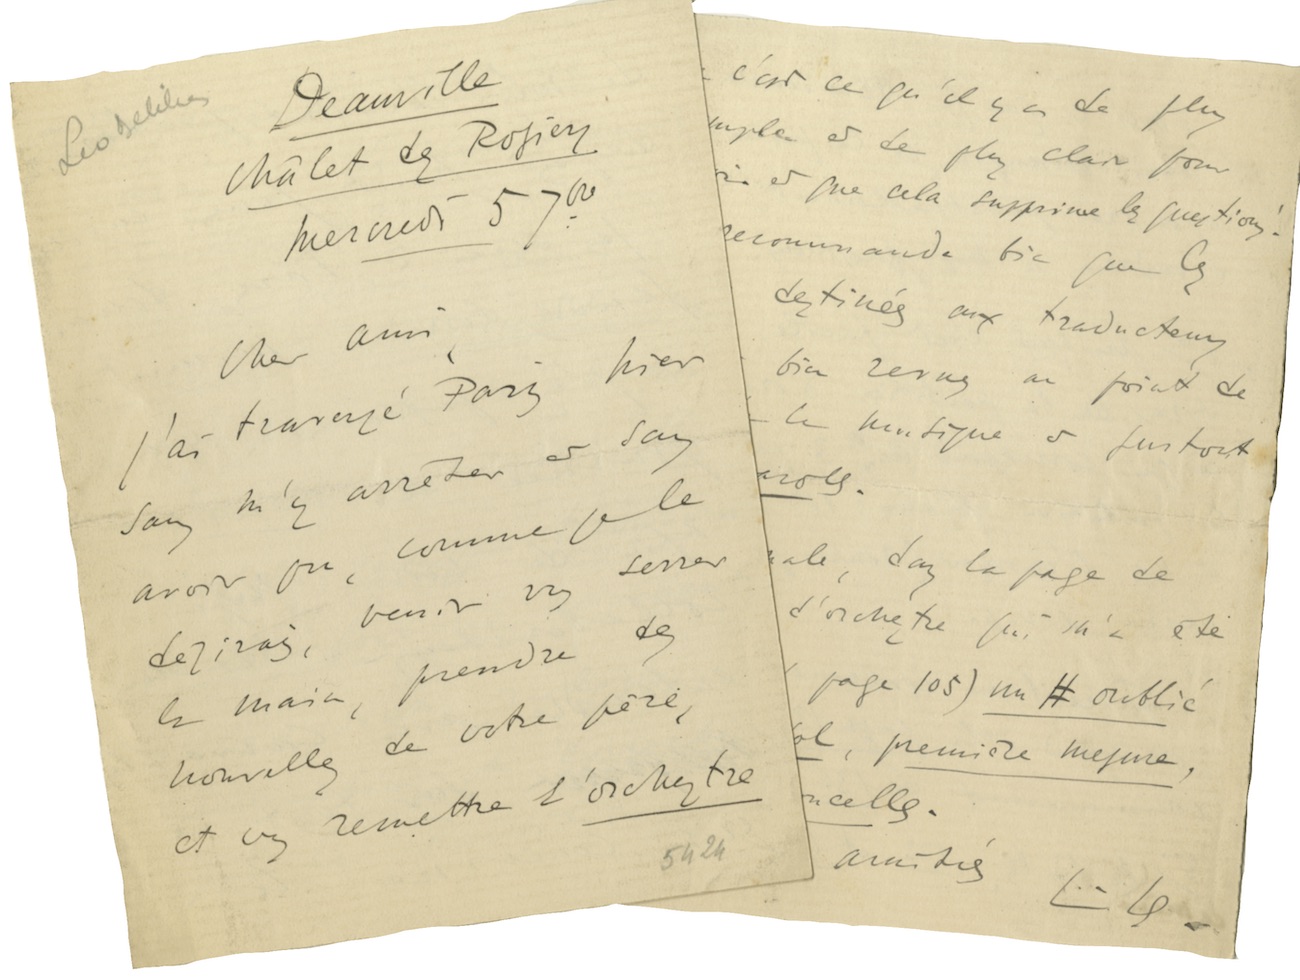 Leo Delibes
Deauville
Châlet des Rosiers
Mercredi 5 7bre
Cher ami,
j'ai traversé Paris hier
sans m'y arrêter et sans
avoir pu, comme je le
desirais, venir vous serrer
la main, prendre des
nouvelles de votre père,
et vous remettre l'orchestre
5424
c'est ce qu'il y a de plus
simple et de plus clair pour
et que cela supprime les questions!
recommande bien que les
destinés aux traducteurs
bien revus au point de
la musique et surtout
paroles.
dans la page de
d'orchestre qui m'a été
page 105) un # oublié
première mesure,
oncelles.
amitiés